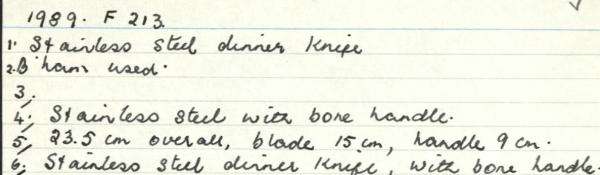 1989. F 213.
1. Stainless steel dinner Knife
2. B'ham used.
3.
4. Stainless steel with bone handle.
5, 23.5 cm overall, blade 15 cm, handle 9 cm.
6. Stainless steel dinner Knife, with bone handle.